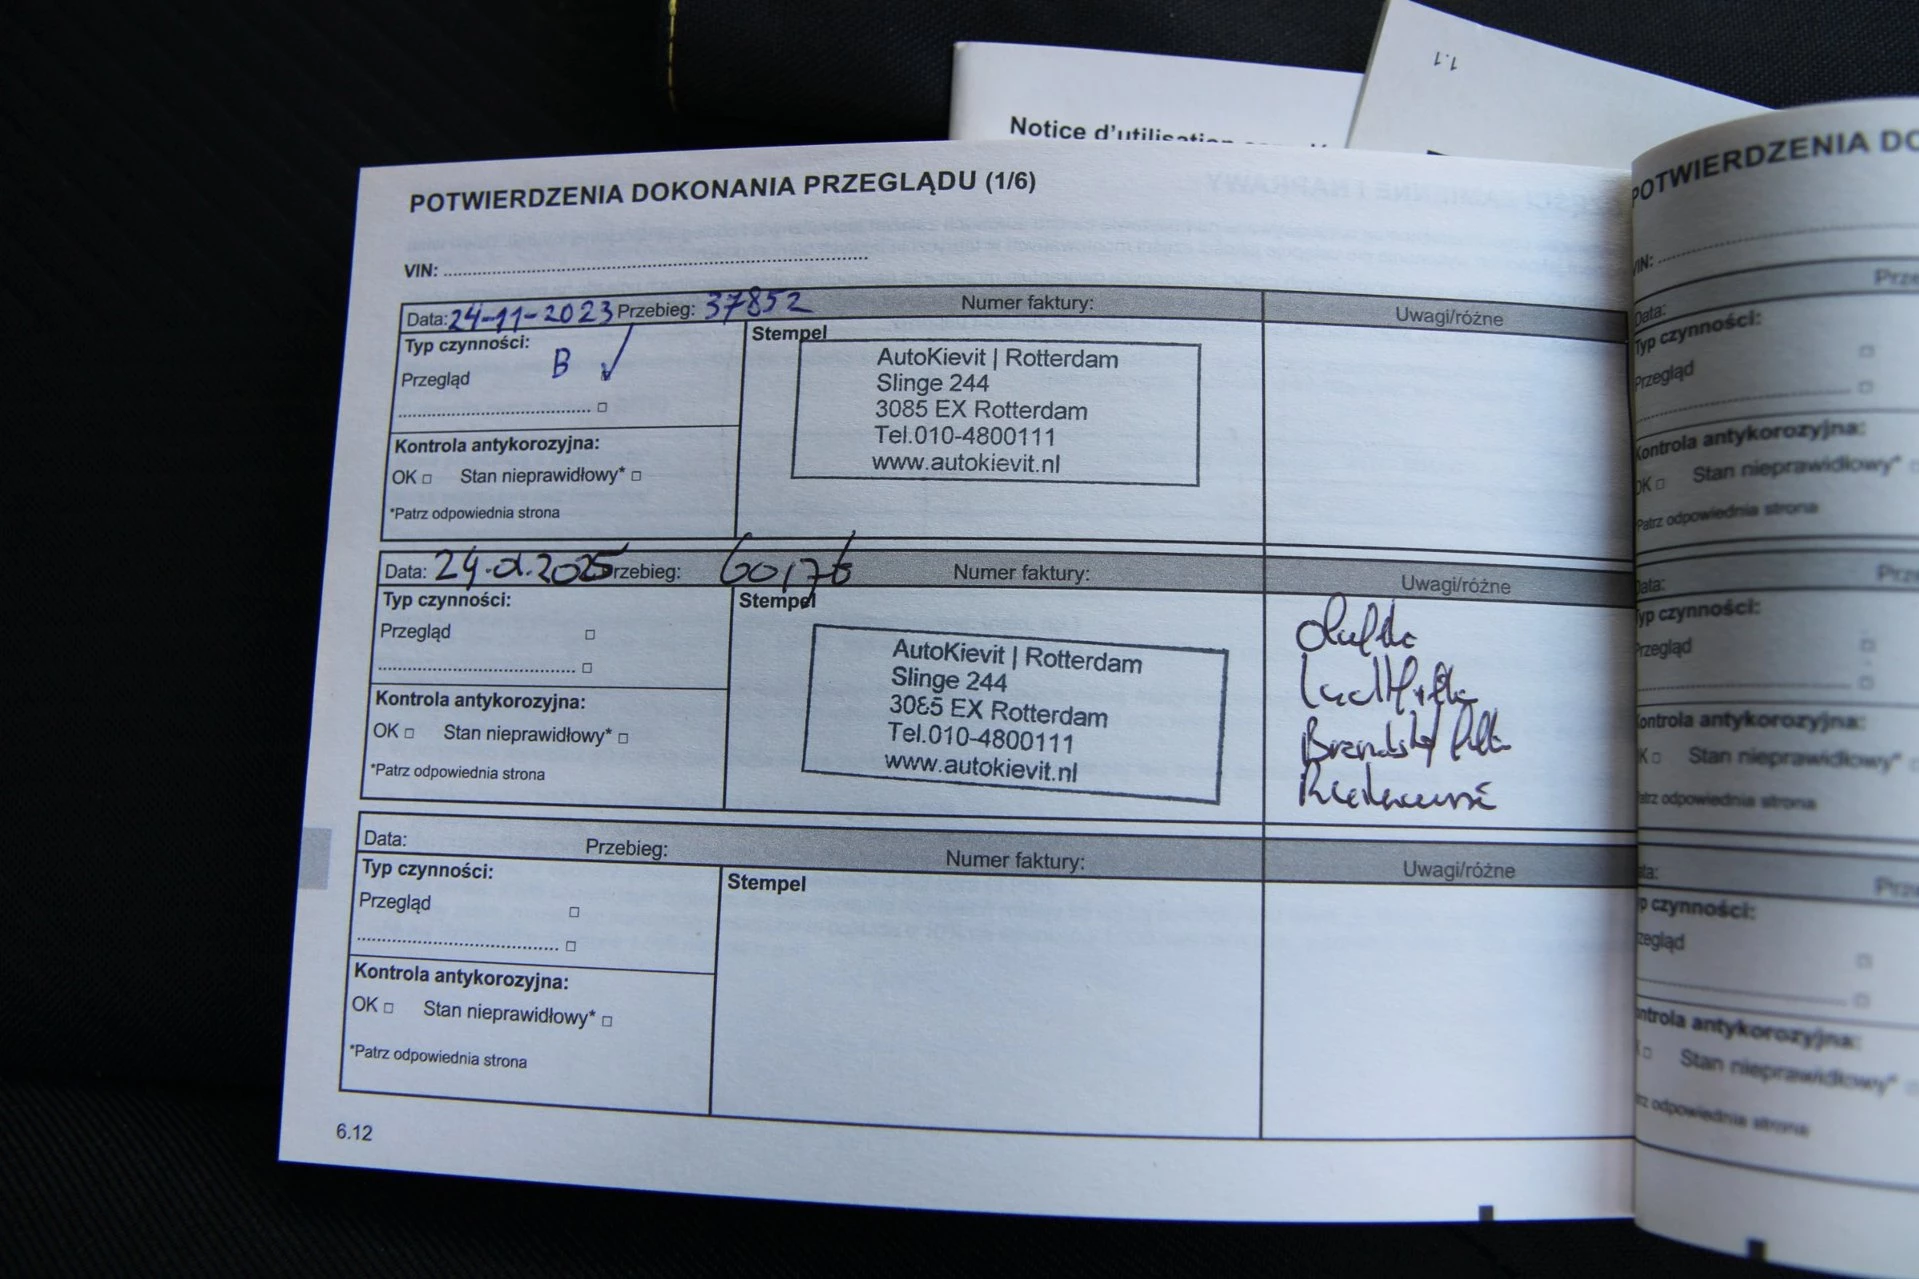 1.1
Notice d'utilisation
POTWIERDZENIA DOKONANIA PRZEGLĄDU (1/6)
VIN:
Data: 24-11-2023 Przebieg: 37852 Numer faktury: Uwagi/różne
Typ czynności: B
Przegląd
Stempel
AutoKievit | Rotterdam
Slinge 244
3085 EX Rotterdam
Tel.010-4800111
www.autokievit.nl
Kontrola antykorozyjna:
OK Stan nieprawidłowy*
*Patrz odpowiednia strona
Data: Przebieg: Numer faktury: Uwagi/różne
Typ czynności:
Przegląd
Stempel
AutoKievit | Rotterdam
Slinge 244
3085 EX Rotterdam
Tel.010-4800111
www.autokievit.nl
Kontrola antykorozyjna:
OK Stan nieprawidłowy*
*Patrz odpowiednia strona
Data: Przebieg: Numer faktury: Uwagi/różne
Typ czynności:
Przegląd
Stempel
Kontrola antykorozyjna:
OK Stan nieprawidłowy*
*Patrz odpowiednia strona
6.12
POTWIERDZENIA
VIN:
Data:
Typ czynności:
Przegląd
Kontrola antykorozyjna:
OK Stan nieprawidłowy*
*Patrz odpowiednia strona
Data:
Typ czynności:
Przegląd
Kontrola antykorozyjna:
Stan nieprawidłowy*
odpowiednia strona
czynności:
antykorozyjna:
Stan nieprawidłowy*
odpowiednia strona